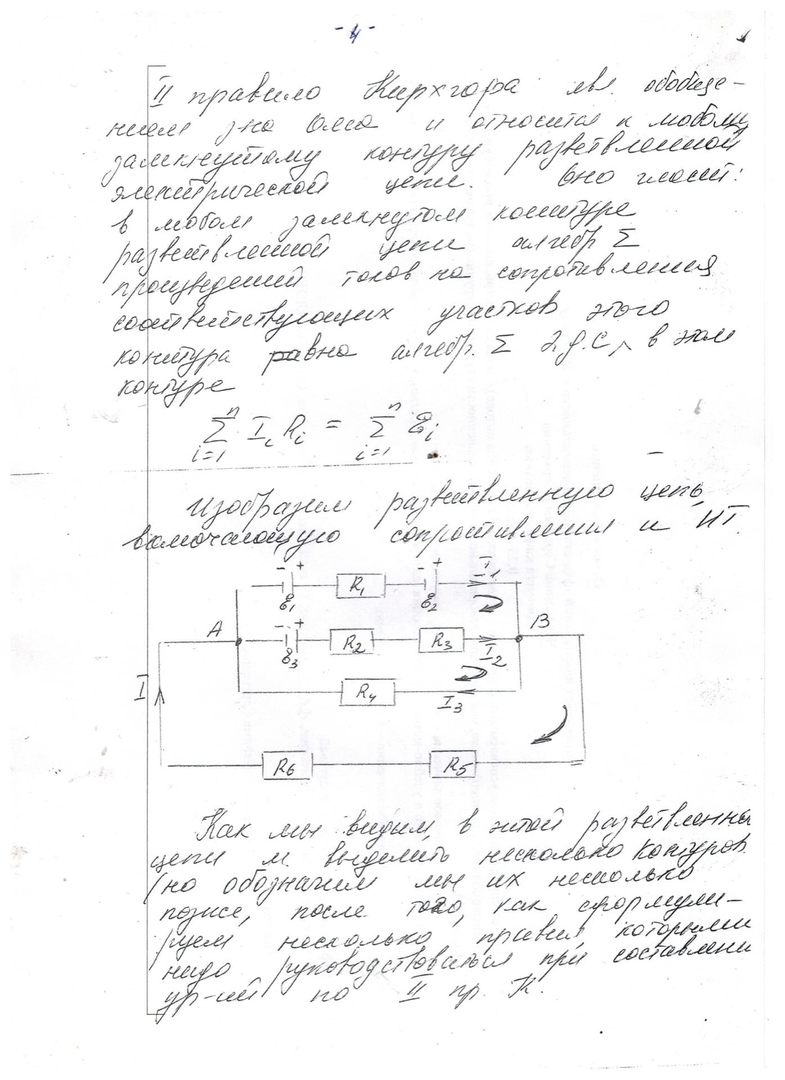 - 4 -
II правило Кирхгофа явл. обобще-
нием з-на Ома и относится к любому
замкнутому контуру разветвленной
электрической цепи. Оно гласит:
в любом замкнутом контуре
разветвленной цепи алгебр Σ
произведений токов на сопротивления
соответствующих участков этого
контура равна алгебр. Σ э.д.с, в этом
контуре
n n
∑ I_i R_i = ∑ ℰ_i
i=1 i=1
Изобразим разветвленную цепь,
включающую сопротивления и ИТ.
- + R₁ - + I₁
ℰ₁ ℰ₂
A - + R₂ R₃ B
ℰ₃ I₂
I R₄ I₃
R₆ R₅
Как мы видим, в этой разветвленна
цепи м. выделить несколько контуров.
(но обозначим мы их несколько
позже, после того, как сформули-
руем несколько правил, которыми
надо руководствоваться при составлени
ур-ий по II пр. К.